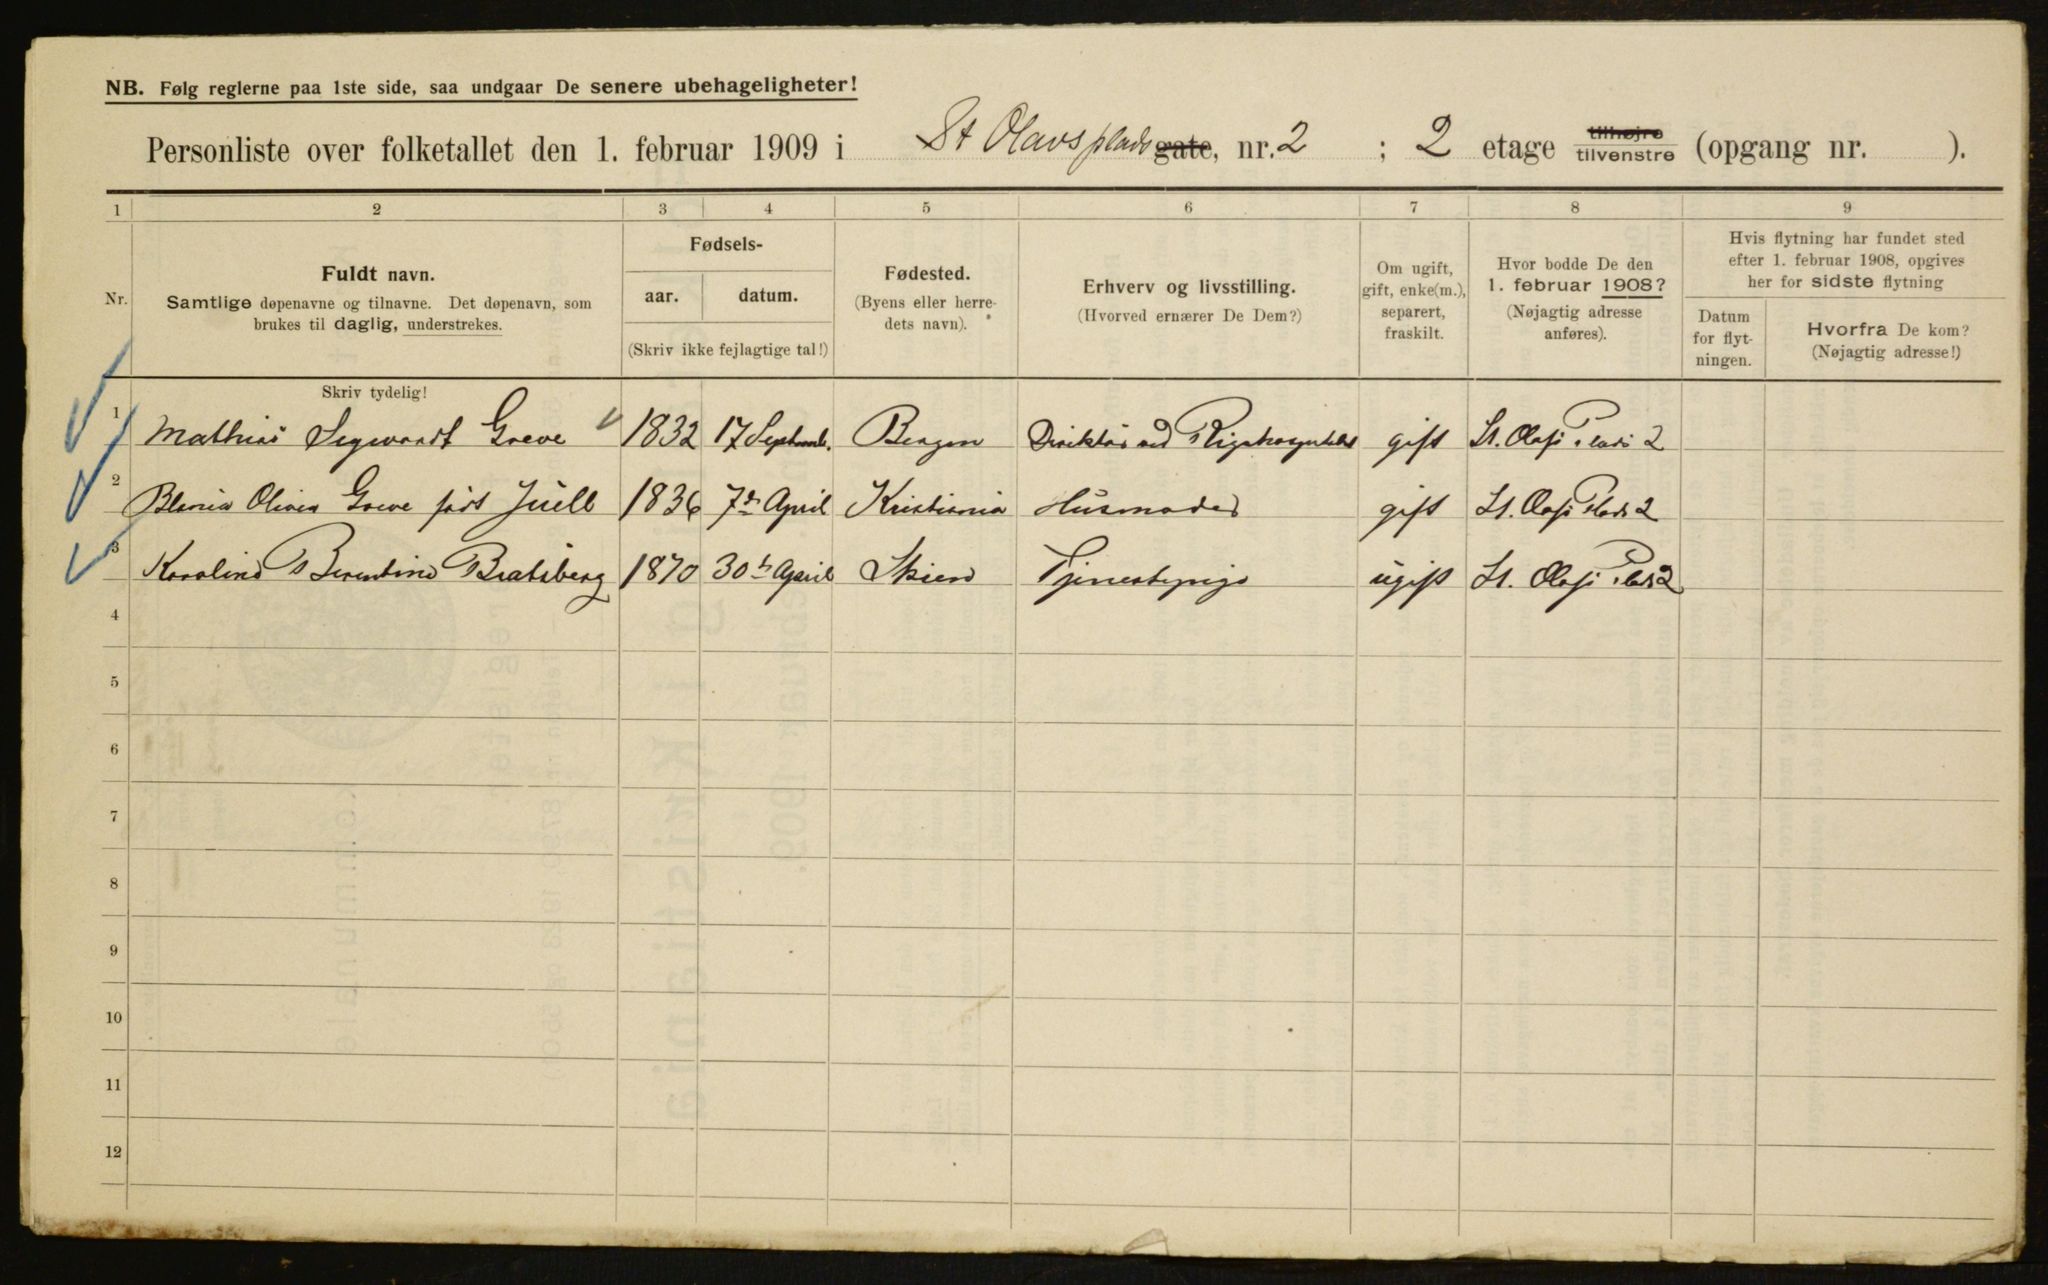 NB. Følg reglerne paa 1ste side, saa undgaar De senere ubehageligheter!
Personliste over folketallet den 1. februar 1909 i St Olavsplads gate, nr. 2 ; 2 etage tilhøjre tilvenstre (opgang nr. ).
1 2 3 4 5 6 7 8 9
Nr.
Fuldt navn.
Samtlige døpenavne og tilnavne. Det døpenavn, som
brukes til daglig, understrekes.
Fødsels-
aar. datum.
(Skriv ikke fejlagtige tal!)
Fødested.
(Byens eller herre-
dets navn).
Erhverv og livsstilling.
(Hvorved ernærer De Dem?)
Om ugift,
gift, enke(m.),
separert,
fraskilt.
Hvor bodde De den
1. februar 1908?
(Nøjagtig adresse
anføres).
Hvis flytning har fundet sted
efter 1. februar 1908, opgives
her for sidste flytning
Datum
for flyt-
ningen.
Hvorfra De kom?
(Nøjagtig adresse!)
Skriv tydelig!
1 Mathias Segwardt Greve 1832 17 Septemb. Bergen Direktør ved Rigshospitalet gift St. Olafs Plads 2
2 Oliva Greve født Juell 1836 7de April Kristiania Husmoder gift St. Olafs Plads 2
3 Karoline Berentine Bratsberg 1870 30te April Skien Tjenestepige ugift St. Olafs Plads 2
4
5
6
7
8
9
10
11
12